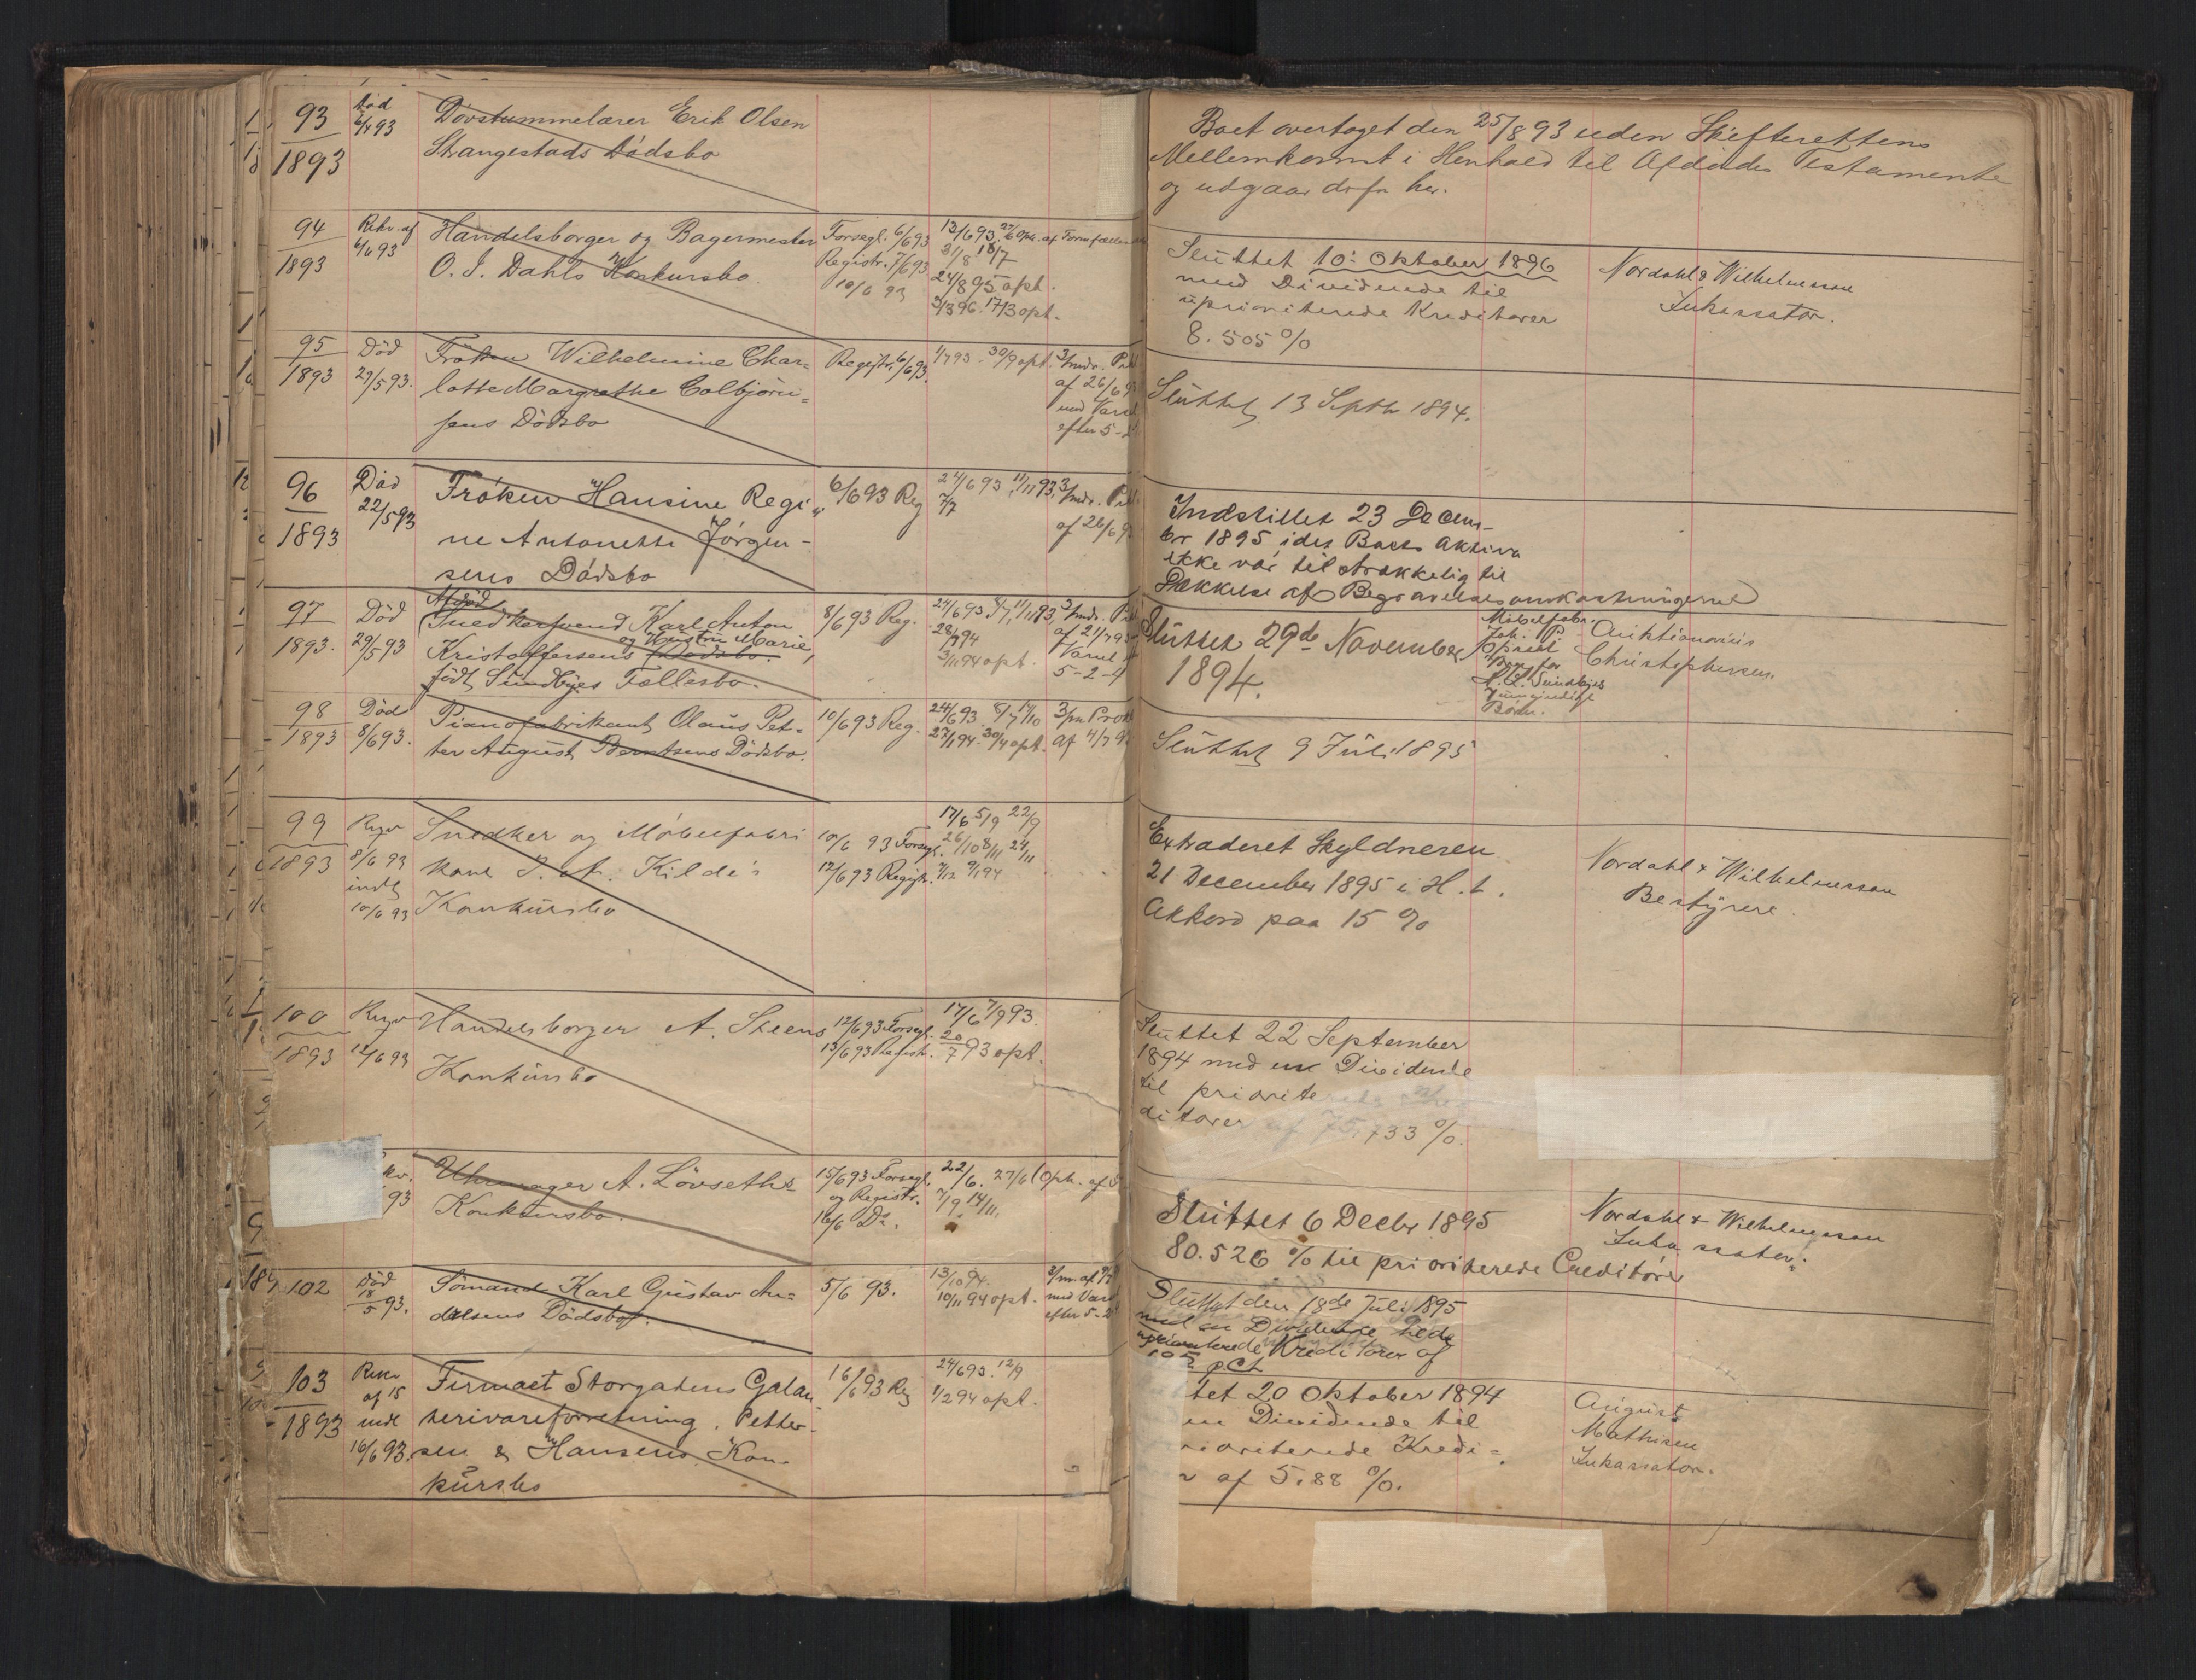 93
1893
Död
6/4 93
Dövstummelærer Erik Olsen
Strangestads Dödsbo
Boet overtaget den 25/8 93 uden Skifterettens
Mellemkomst i Henhold til Afdödes Testamente
og udgaar derfor her.
94
1893
Rekv. af
6/6 93
Handelsborger og Bagermester
O. J. Dahls Konkursbo
Forsegl. 6/6 93
Registr. 7/6 93
10/6 93
13/6 93.
31/8 18/7
24/8 95 opt.
3/3 96. 17/3 opt.
Sluttet 10. Oktober 1896
med Dividende til
uprioriterede Kreditorer
8.505 %
Nordahl & Wilhelmsson
Inkassator.
95
1893
Död
29/5 93.
Fröken Wilhelmine Char=
lotte Margrethe Colbjörn=
sens Dödsbo
Registr. 6/6 93.
1/7 93 30/9 opt.
af 26/6
efter 5-
Sluttet 13 Septbr 1894.
96
1893
Död
22/5 93
Fröken Hansine Regi
ne Antonette Jörgen-
sens Dödsbo
6/6 93 Reg
24/6 93, 11/11 93,
7/7
af 26/6
Indstillet 23 Decem-
ber 1895, idet Boets Aktiva
ikke var tilstrækkelig til
Dækkelse af Begravelsesomkostningerne
97
1893.
Död
29/5 93
Afdöd
Snedkersvend Karl Anton
og Hustru Marie,
Kristoffersens Dödsbo.
födt Sundbyes Fællesbo.
8/6 93 Reg.
24/6 93. 8/7 11/11 93,
3/11 94 opt.
5-2-4
Sluttet 29de November
1894.
Möbelfabr.
Joh. P.
Börn.
Auktionarius
Christophersen.
98
1893
Död
8/6 93.
Pianofabrikant Olaus Pet=
ter August Berntsens Dödsbo.
10/6 93 Reg.
24/6 93. 8/7 14/10
27/1 94. 30/4 opt.
af 4/7
Sluttet 9 Juli 1895
99
1893
8/6 93
indk
10/6 93
Snedker og Möbelfabri
kant J. A. Kilde's
Konkursbo
10/6 93 Forsegl.
12/6 93 Registr.
17/6 5/9 22/9
26/10 8/11 24/11
9/1 94
Extraderet Skyldneren
21 December 1895 i H. t.
Akkord paa 15 %
Nordahl & Wilhelmsson
Bestyrere.
100
1893
12/6 93
Handelsborger A. Steens
Konkursbo
12/6 93 Forsegl.
13/6 93 Registr.
17/6 7/9 93.
20/7 93 opt.
Sluttet 22 September
1894 med en Dividende
til prioriterede Kre=
ditorer af 75.733 %.
93
Uhrmager A. Lövseths
Konkursbo.
15/6 93 Forsegl.
og Registr.
16/6 Do.
22/6. 27/6
7/9 14/11.
Sluttet 6 Decbr 1895
80.526 % til prioriterede Creditorer
Nordahl & Wilhelmsson
Inkassator.
102
Död
18/5 93.
Sömand Karl Gustav An=
delsens Dödsbo.
5/6 93.
13/10 94.
10/11 94 opt.
efter 5-2
Sluttet den 18de Juli 1895
med en Dividende til de
uprioriterede Kreditorer af
pCt
103
1893
Rekv
af 15
indk
16/6 93.
Firmaet Storgadens Galan
terivareforretning, Petter-
sen & Hansens Kon-
kursbo
16/6 93 Reg
24/6 93. 12/9
1/2 94 opt.
tet 20 Oktober 1894
en Dividende til
rioriterede Kredi=
r af 5.88 %.
August
Mathisen
Inkassator.